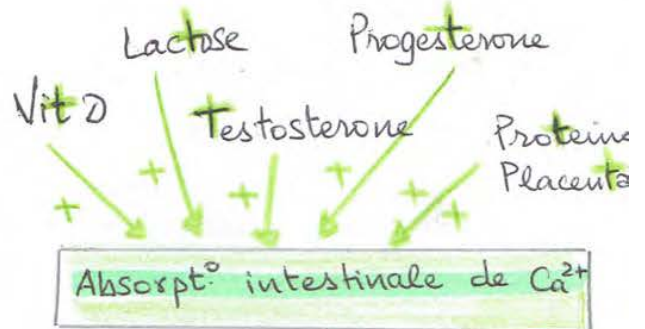 Lactose
Progesterone
Vit D
Testosterone
Proteine
Placenta
+ + + + + +
Absorpt° intestinale de Ca²⁺